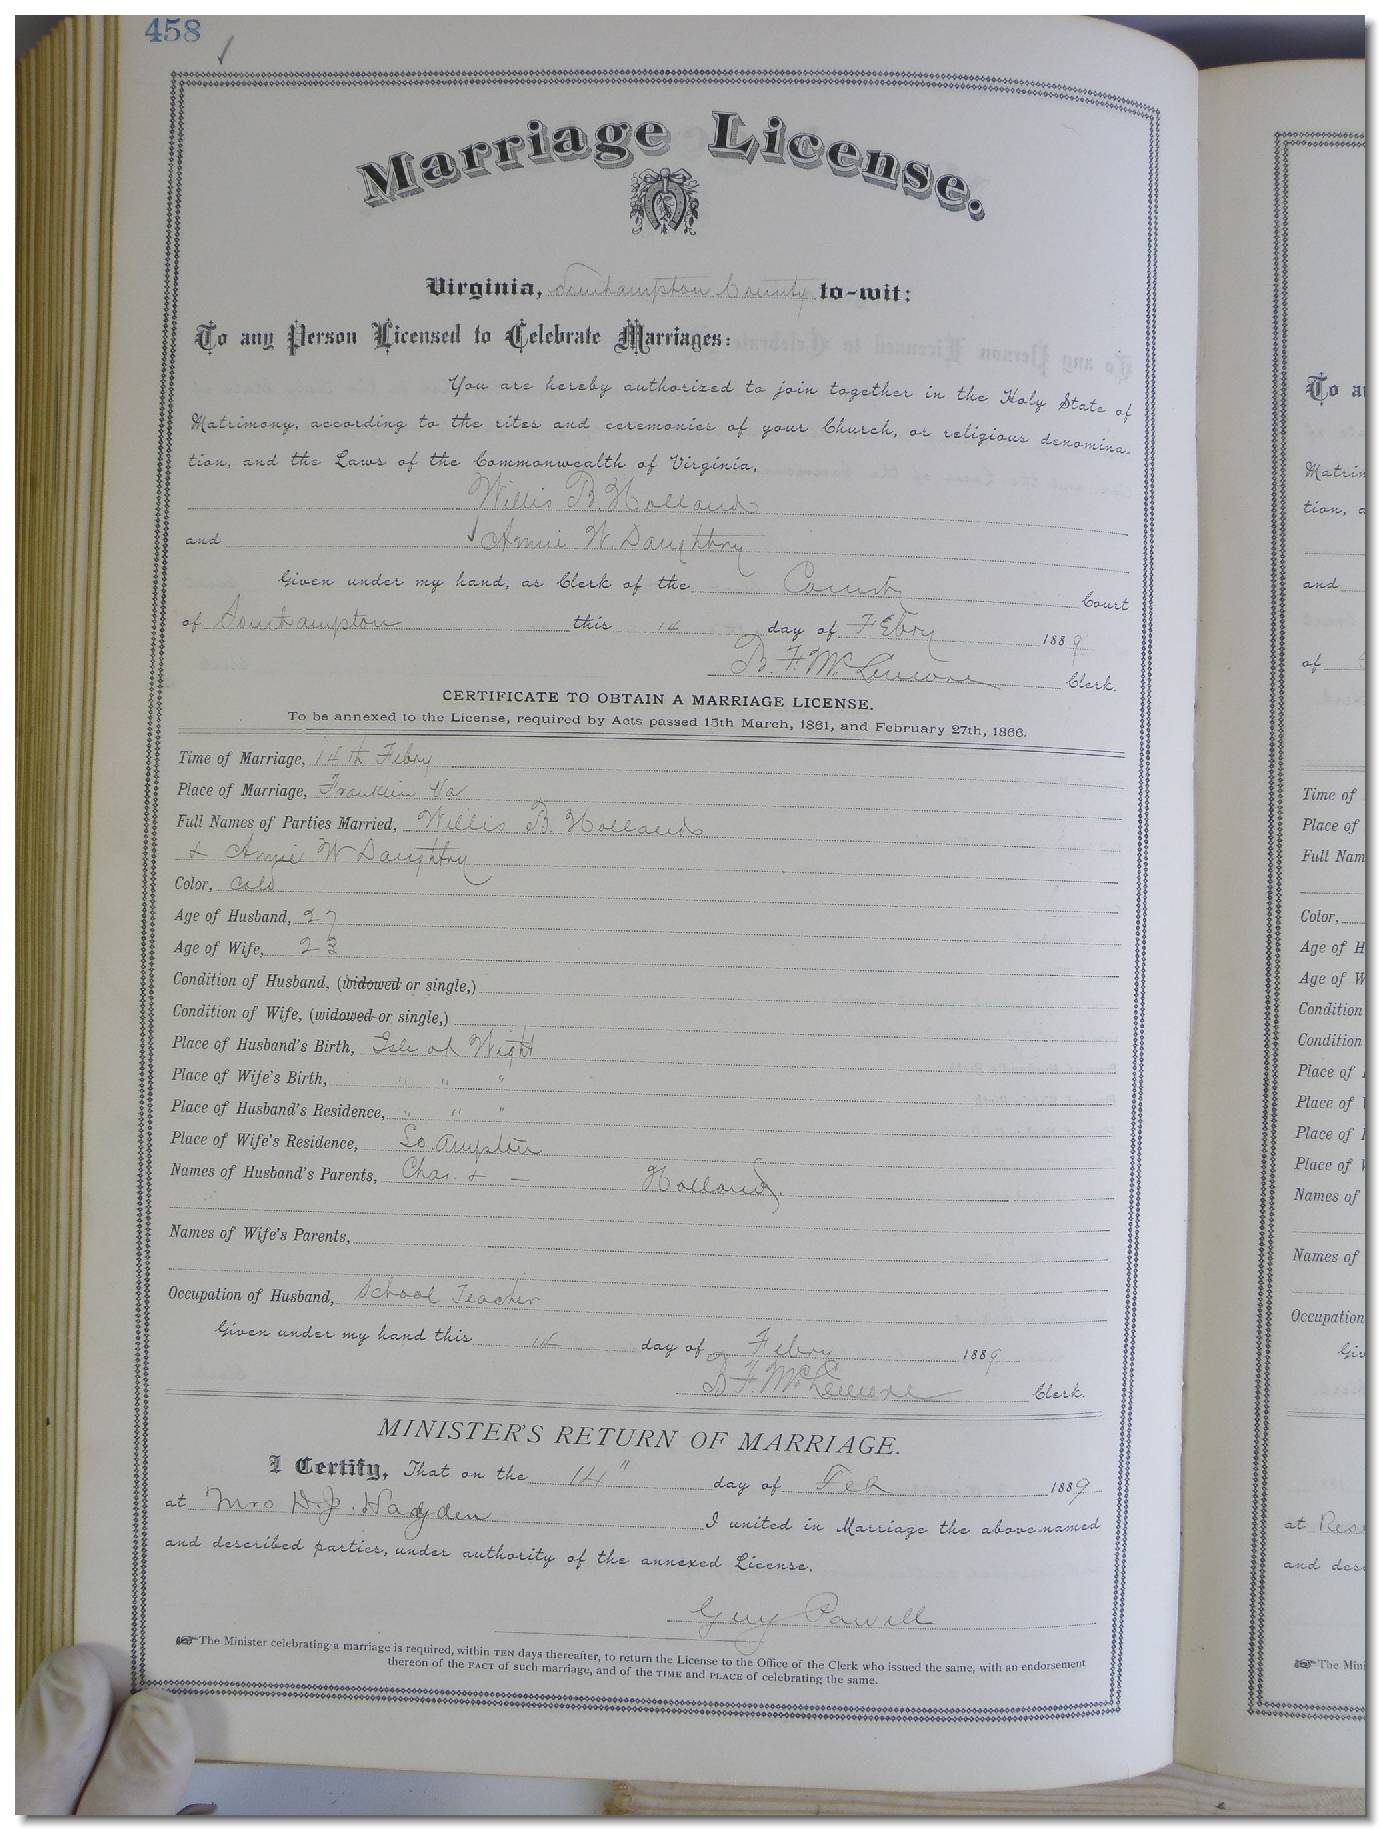 458
Marriage License.
Virginia, Southampton County to-wit:
To any Person Licensed to Celebrate Marriages:
You are hereby authorized to join together in the Holy State of
Matrimony, according to the rites and ceremonies of your Church, or religious denomina-
tion, and the Laws of the Commonwealth of Virginia,
Willis B. Holland
and Annie W. Daughtry
Given under my hand, as Clerk of the County Court
of Southampton this 14 day of Febry 1889
B. F. McLemore Clerk.
CERTIFICATE TO OBTAIN A MARRIAGE LICENSE.
To be annexed to the License, required by Acts passed 15th March, 1861, and February 27th, 1866.
Time of Marriage, 14th Febry
Place of Marriage, Franklin Va
Full Names of Parties Married, Willis B. Holland
& Annie W Daughtry
Color, Cold
Age of Husband, 27
Age of Wife, 23
Condition of Husband, (widowed or single,)
Condition of Wife, (widowed or single,)
Place of Husband's Birth, Isle of Wight
Place of Wife's Birth, " " "
Place of Husband's Residence, " " "
Place of Wife's Residence, So.ampton
Names of Husband's Parents, Chas. & — Holland
Names of Wife's Parents,
Occupation of Husband, School Teacher
Given under my hand this 14 day of Febry 1889
B. F. McLemore Clerk.
MINISTER'S RETURN OF MARRIAGE.
I Certify, That on the 14" day of Feb 1889
at Mrs I united in Marriage the above named
and described parties, under authority of the annexed License.
Guy Powell
The Minister celebrating a marriage is required, within TEN days thereafter, to return the License to the Office of the Clerk who issued the same, with an endorsement
thereon of the FACT of such marriage, and of the TIME and PLACE of celebrating the same.
To a
Matrim
tion, a
and
of
Time of
Place of
Full Nam
Color,
Age of H
Age of W
Condition
Condition
Place of
Place of
Place of
Place of
Names of
Names of
Occupation
Giv
at Res
and des
The Mini